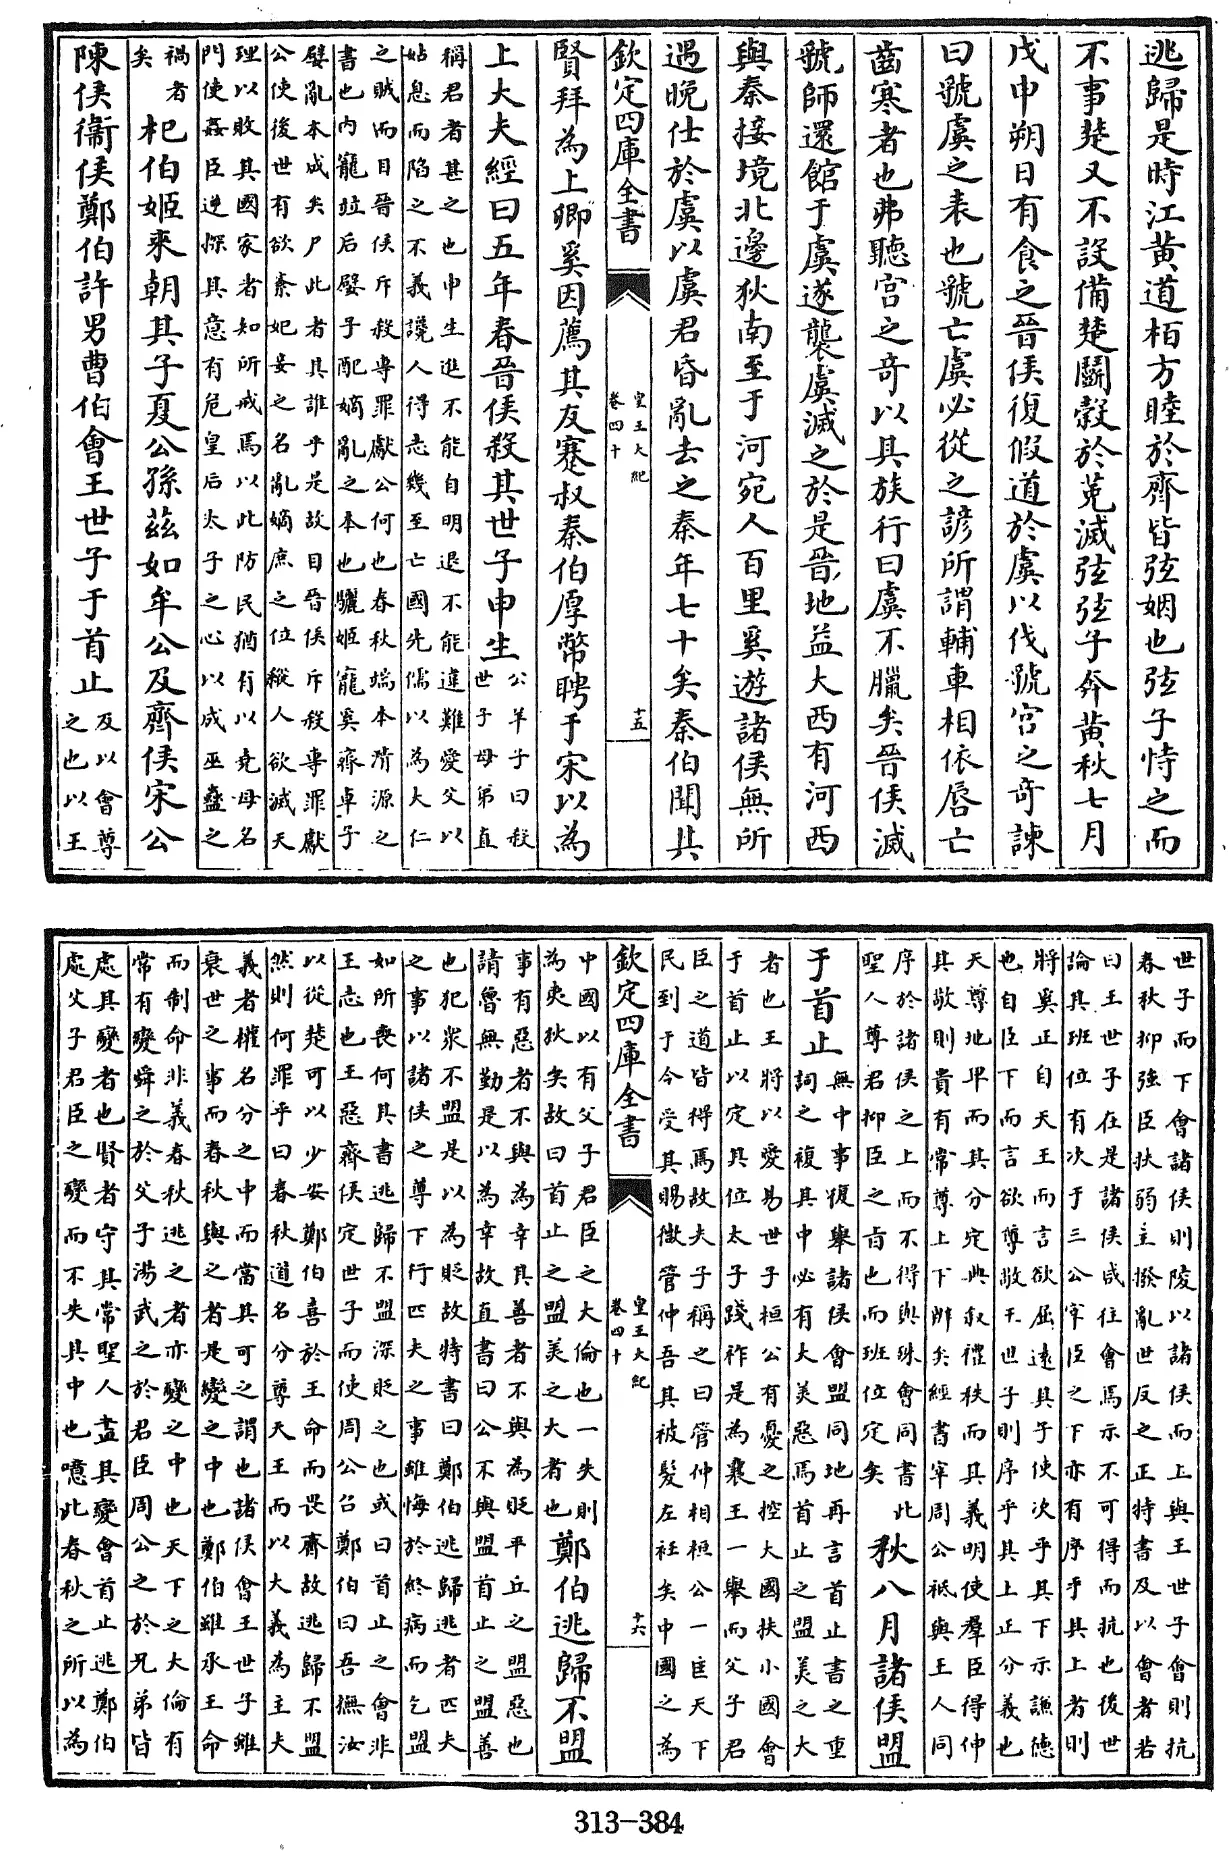 逃歸是時江黃道栢方睦於齊皆弦姻也弦子恃之而
不事楚又不設備楚鬭穀於菟滅弦弦子奔黃秋七月
戊申朔日有食之晉侯復假道於虞以伐虢宮之奇諫
曰虢虞之表也虢亡虞必從之諺所謂輔車相依唇亡
齒寒者也弗聽宮之奇以其族行曰虞不臘矣晉侯滅
虢師還館于虞遂襲虞滅之於是晉地益大西有河西
與秦接境北邊狄南至于河宛人百里奚遊諸侯無所
遇晚仕於虞以虞君昏亂去之秦年七十矣秦伯聞其
欽定四庫全書
皇王大紀
卷四十
十五
賢拜為上卿奚因薦其友蹇叔秦伯厚幣聘于宋以為
上大夫經曰五年春晉侯殺其世子申生
公羊子曰殺
世子母弟直
稱君者甚之也申生進不能自明退不能違難愛父以
姑息而陷之不義讒人得志幾至亡國先儒以為大仁
之賊而目晉侯斥殺專罪獻公何也春秋端本清源之
書也内寵竝后嬖子配嫡亂之本也驪姬寵奚齊卓子
嬖亂本成矣尸此者其誰乎是故目晉侯斥殺專罪獻
公使後世有欲紊妃妾之名亂嫡庶之位縱人欲滅天
理以敗其國家者知所戒焉以此防民猶有以堯母名
門使姦臣逆探其意有危皇后太子之心以成巫蠱之
禍者
矣
杞伯姬來朝其子夏公孫茲如牟公及齊侯宋公
陳侯衛侯鄭伯許男曹伯會王世子于首止
及以會尊
之也以王
世子而下會諸侯則陵以諸侯而上與王世子會則抗
春秋抑強臣扶弱主撥亂世反之正特書及以會者若
曰王世子在是諸侯咸往會焉示不可得而抗也後世
論其班位有次于三公宰臣之下亦有序乎其上者則
將奚正自天王而言欲屈遠其子使次乎其下示謙德
也自臣下而言欲尊敬王世子則序乎其上正分義也
天尊地卑而其分定典叙禮秩而其義明使羣臣得仲
其敬則貴有常尊上下辨矣經書宰周公祗與王人同
序於諸侯之上而不得與殊會同書此
聖人尊君抑臣之旨也而班位定矣
秋八月諸侯盟
于首止
無中事復舉諸侯會盟同地再言首止書之重
詞之複其中必有大美惡焉首止之盟美之大
者也王將以愛易世子桓公有憂之控大國扶小國會
于首止以定其位太子踐祚是為襄王一舉而父子君
臣之道皆得焉故夫子稱之曰管仲相桓公一匡天下
民到于今受其賜微管仲吾其被髮左衽矣中國之為
欽定四庫全書
皇王大紀
卷四十
十六
中國以有父子君臣之大倫也一失則
為夷狄矣故曰首止之盟美之大者也
鄭伯逃歸不盟
事有惡者不與為幸其善者不與為貶平丘之盟惡也
請魯無勤是以為幸故直書曰公不與盟首止之盟善
也犯眾不盟是以為貶故特書曰鄭伯逃歸逃者匹夫
之事以諸侯之尊下行匹夫之事雖悔於終病而乞盟
如所喪何其書逃歸不盟深貶之也或曰首止之會非
王志也王惡齊侯定世子而使周公召鄭伯曰吾撫汝
以從楚可以少安鄭伯喜於王命而畏齊故逃歸不盟
然則何罪乎曰春秋道名分尊天王而以大義為主夫
義者權名分之中而當其可之謂也諸侯會王世子雖
衰世之事而春秋與之者是變之中也鄭伯雖承王命
而制命非義春秋逃之者亦變之中也天下之大倫有
常有變舜之於父子湯武之於君臣周公之於兄弟皆
處其變者也賢者守其常聖人盡其變會首止逃鄭伯
處父子君臣之變而不失其中也噫此春秋之所以為
313-384